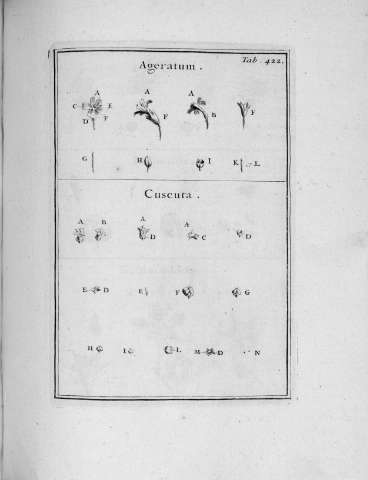 Tab. 422.
Ageratum.
A A A
C E F B F
D F
G H I K L
Cuscuta.
A B A A
D C D
E D E F G
H I L M D N